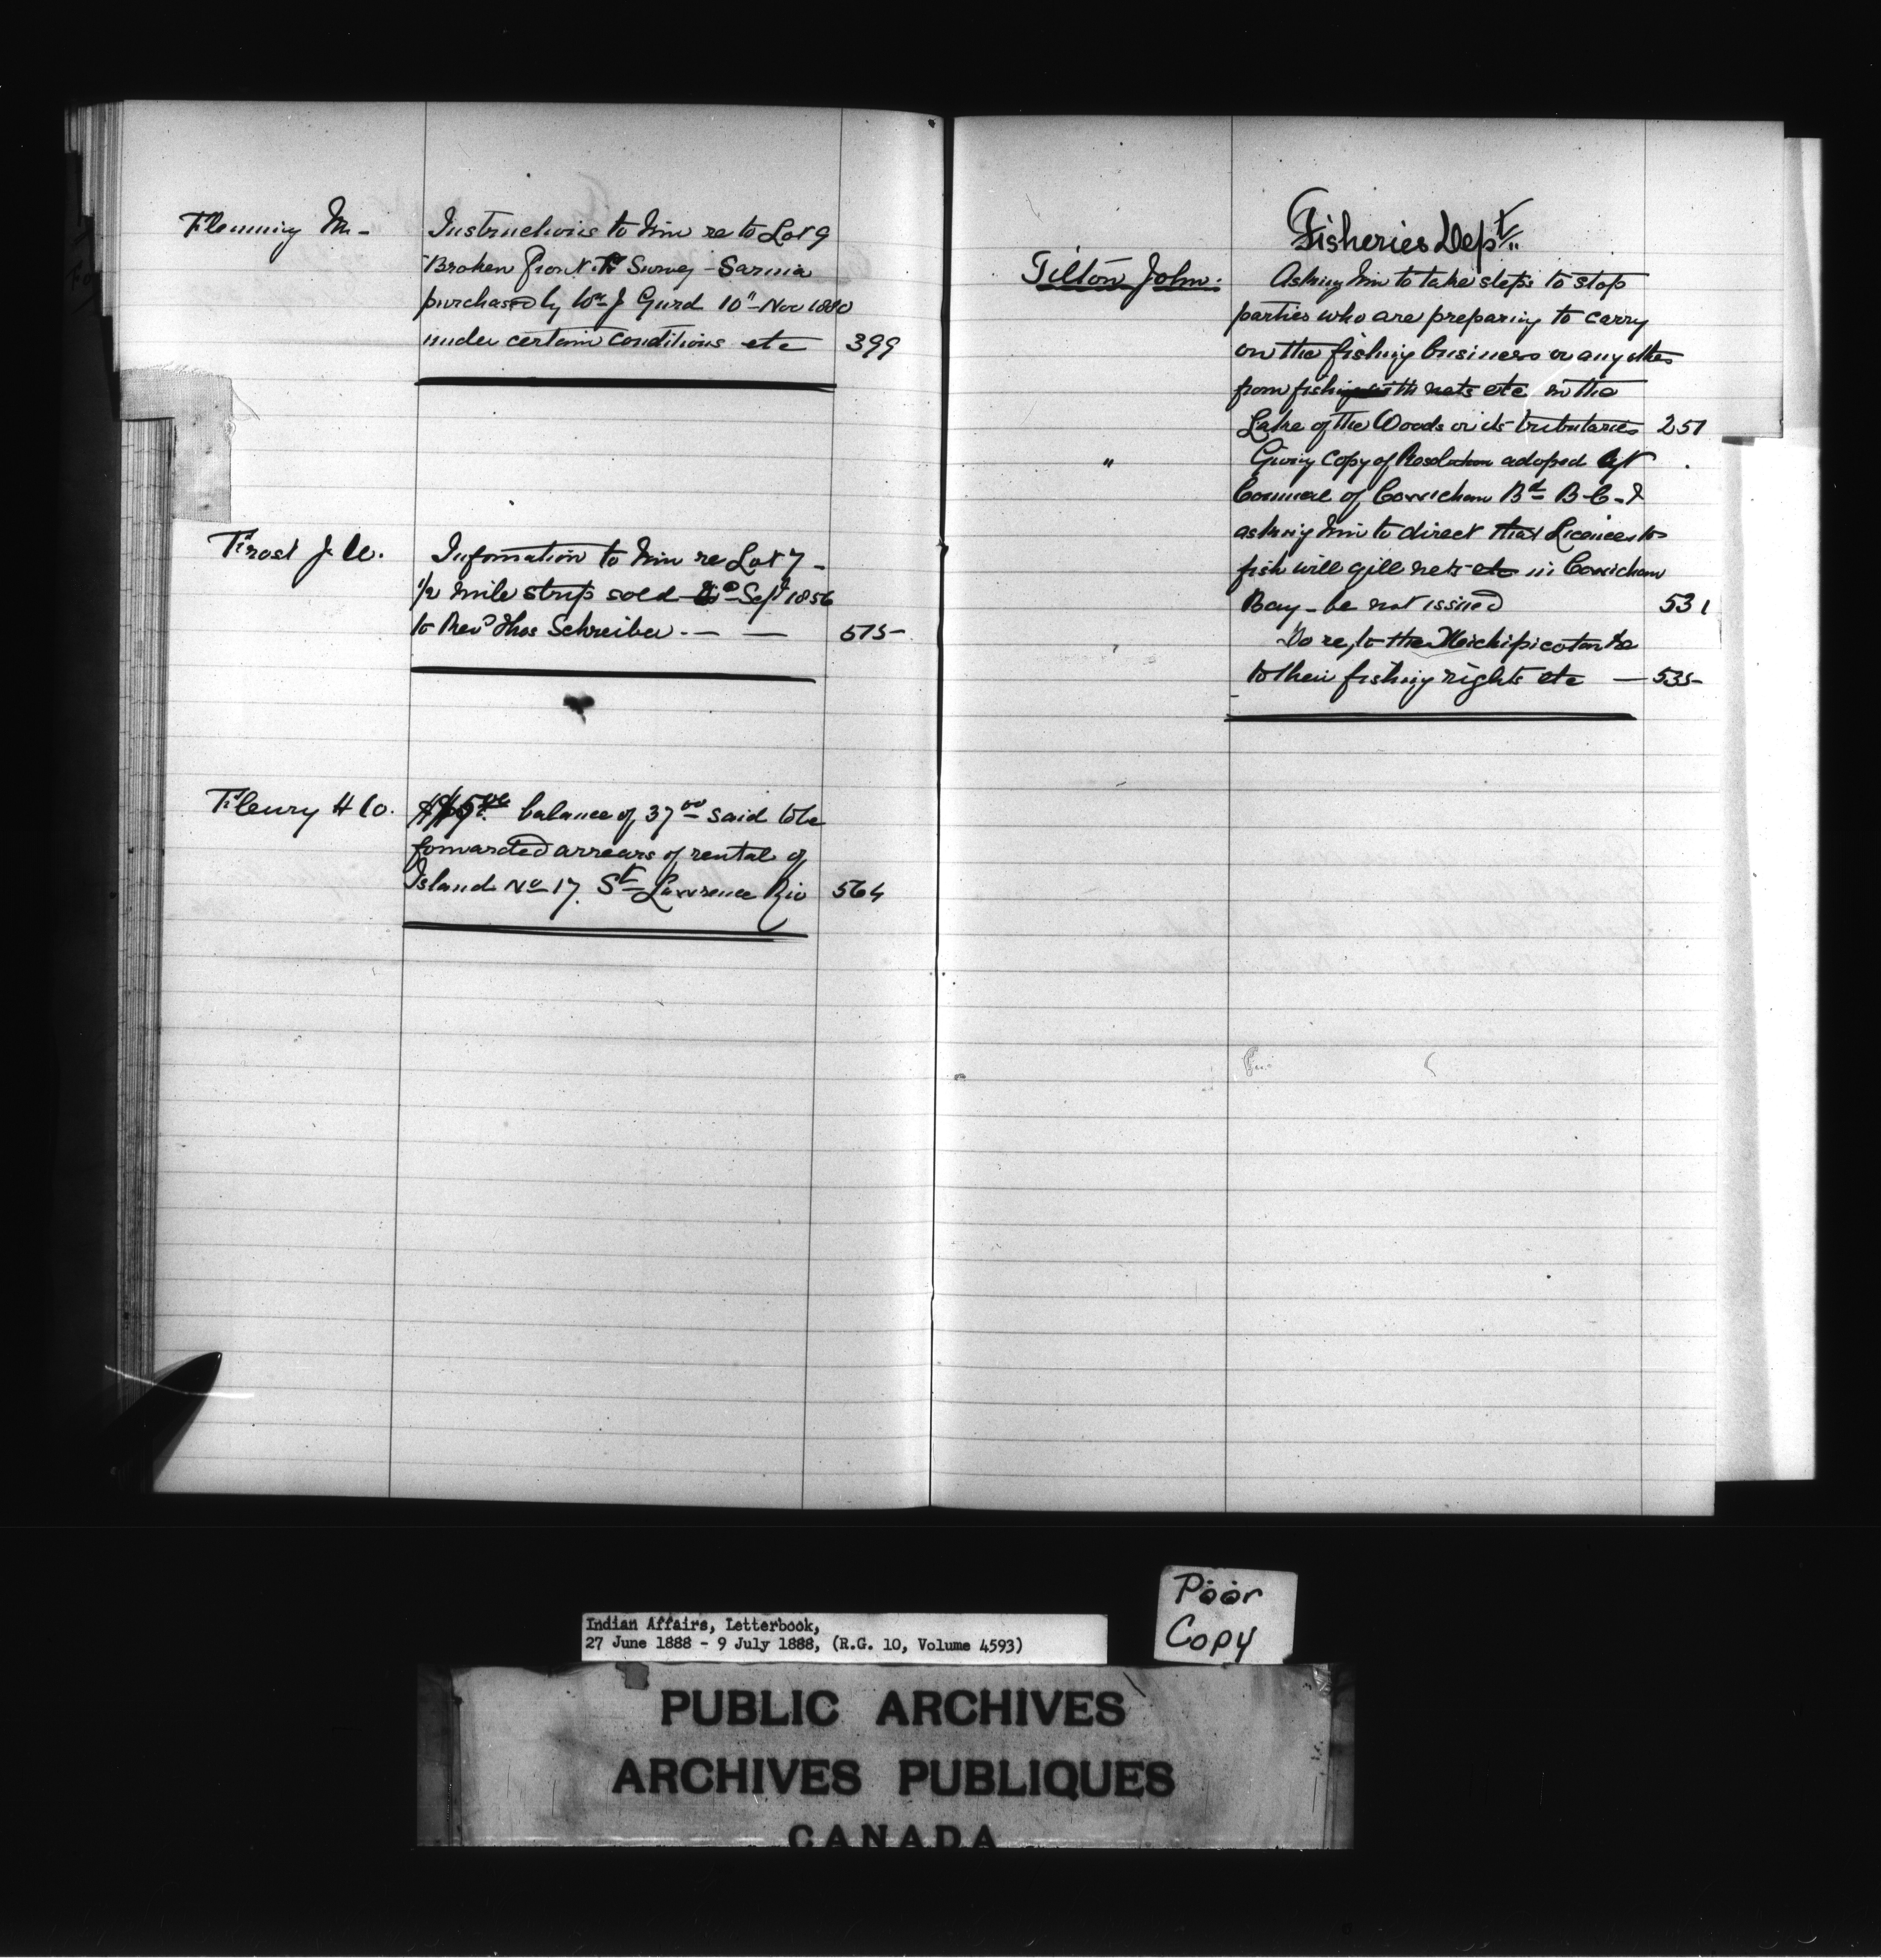 Flemming M -
Instructions to him re to Lot 9
Broken Front. Survey - Sarnia
purchased by Wm J Gurd 10" Nov 1880
under certain conditions etc 399
Frost J. W.
Information to him re Lot 7 -
1/2 mile strip sold Sept 1856
to Revd Thos Schreiber. — — 575
Fleury H Co.
balance of 37 00 said to be
forwarded arrears of rental of
Island No 17. St Lawrence Riv 564
Fisheries Dept
Tilton John:
Asking him to take steps to stop
parties who are preparing to carry
on the fishing business or any others
from fishing with nets etc in the
Lake of the Woods or its tributaries 251
" Giving copy of Resolution adoped
Council of Cowichan Bd B-C- &
asking him to direct that Licences to
fish will gill nets etc in Cowichan
Bay - be not issued 531
Do re, to the Michipicoten
to their fishing rights etc — 535
Poor
Copy
Indian Affairs, Letterbook,
27 June 1888 - 9 July 1888, (R.G. 10, Volume 4593)
PUBLIC ARCHIVES
ARCHIVES PUBLIQUES
CANADA